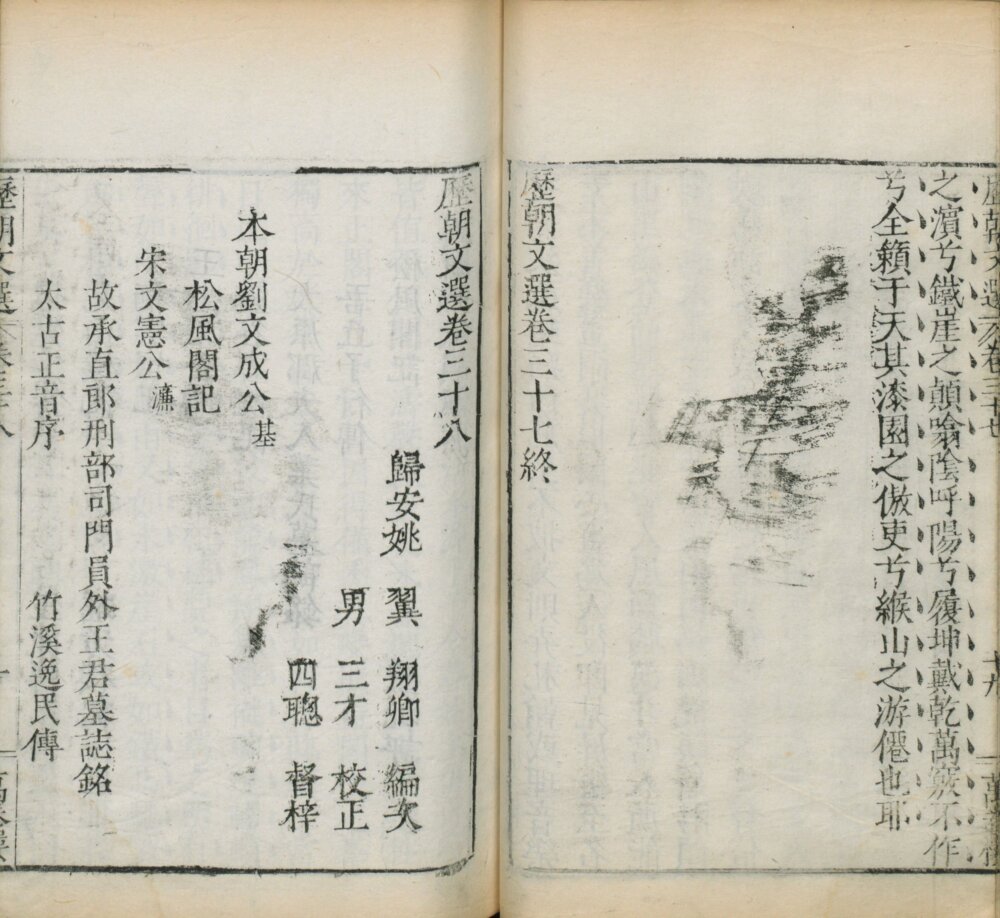 之濱兮鐵崖之顛噏陰呼陽兮履坤戴乾萬竅不作
兮全籟于天其漆園之傲吏兮緱山之游僊也耶
歷朝文選卷三十七終
歷朝文選卷三十八
歸安姚翼翔卿編次
男三才校正
四聰督梓
本朝劉文成公基
松風閣記
宋文憲公濂
故承直郎刑部司門員外王君墓誌銘
太古正音序
竹溪逸民傳